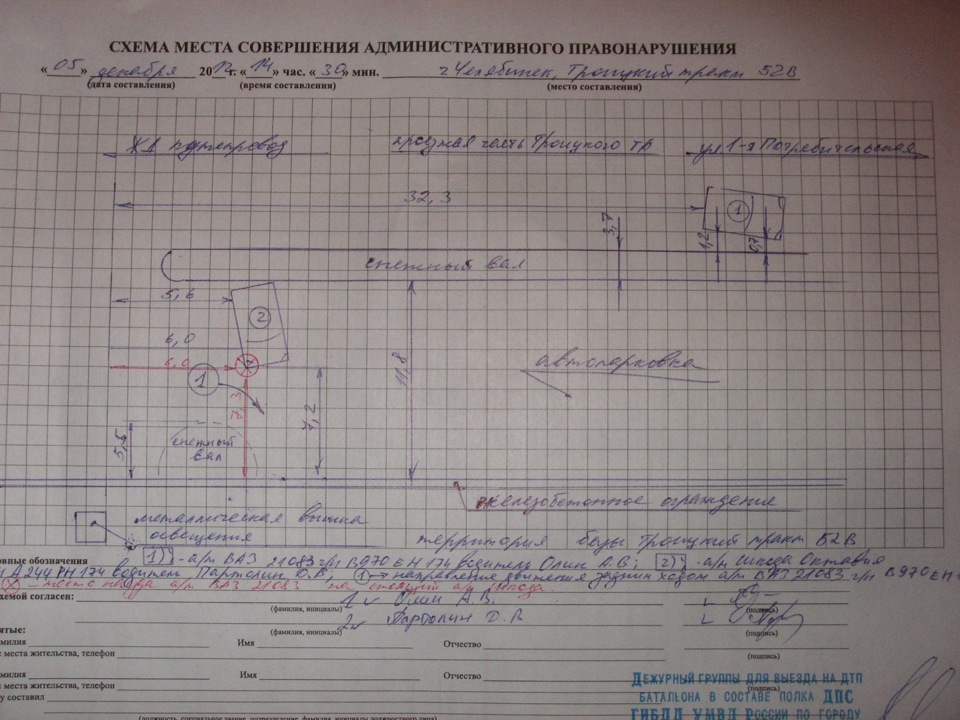 СХЕМА МЕСТА СОВЕРШЕНИЯ АДМИНИСТРАТИВНОГО ПРАВОНАРУШЕНИЯ
« 05 » декабря 2012 г. « 14 » час. « 30 » мин. г Челябинск, Троицкий тракт 52 В
(дата составления) (время составления) (место составления)
ЖД путепровод проезжая часть Троицкого тр ул 1-я Потребительская
32,3
1
3,7
1,2
0,7
снежный вал
5,6
2
6,0
6,0
1
11,8
автопарковка
7,3
7,2
5,5
снежный вал
железобетонное ограждение
металлическая вышка
освещения
территория базы Троицкий тракт 52 В
овные обозначения 1 - а/м ВАЗ 21083 г/н В970ЕН 174 водитель Олин А.В; 2 - а/м Шкода Октавия
244 РН 174 водитель Партолин Д.В, 1 → - направление движения задним ходом а/м ВАЗ 21083 г/н В970ЕН
- место наезда а/м ВАЗ 21083 на стоящий а/м Шкода.
хемой согласен: 1 Олин А.В.
(фамилия, инициалы) (подпись)
2 Партолин Д.В
(фамилия, инициалы) (подпись)
ятые:
милия Имя Отчество
места жительства, телефон (подпись)
милия Имя Отчество
места жительства, телефон (подпись)
у составил
(должность, специальное звание, подразделение, фамилия, инициалы должностного лица)
ДЕЖУРНЫЙ ГРУППЫ ДЛЯ ВЫЕЗДА НА ДТП
БАТАЛЬОНА В СОСТАВЕ ПОЛКА ДПС
ГИБДД УМВД РОССИИ ПО ГОРОДУ